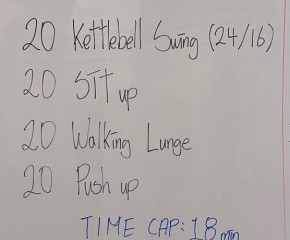 20 Kettlebell Swing (24/16)
20 Sit up
20 Walking Lunge
20 Push up
TIME CAP: 18 min